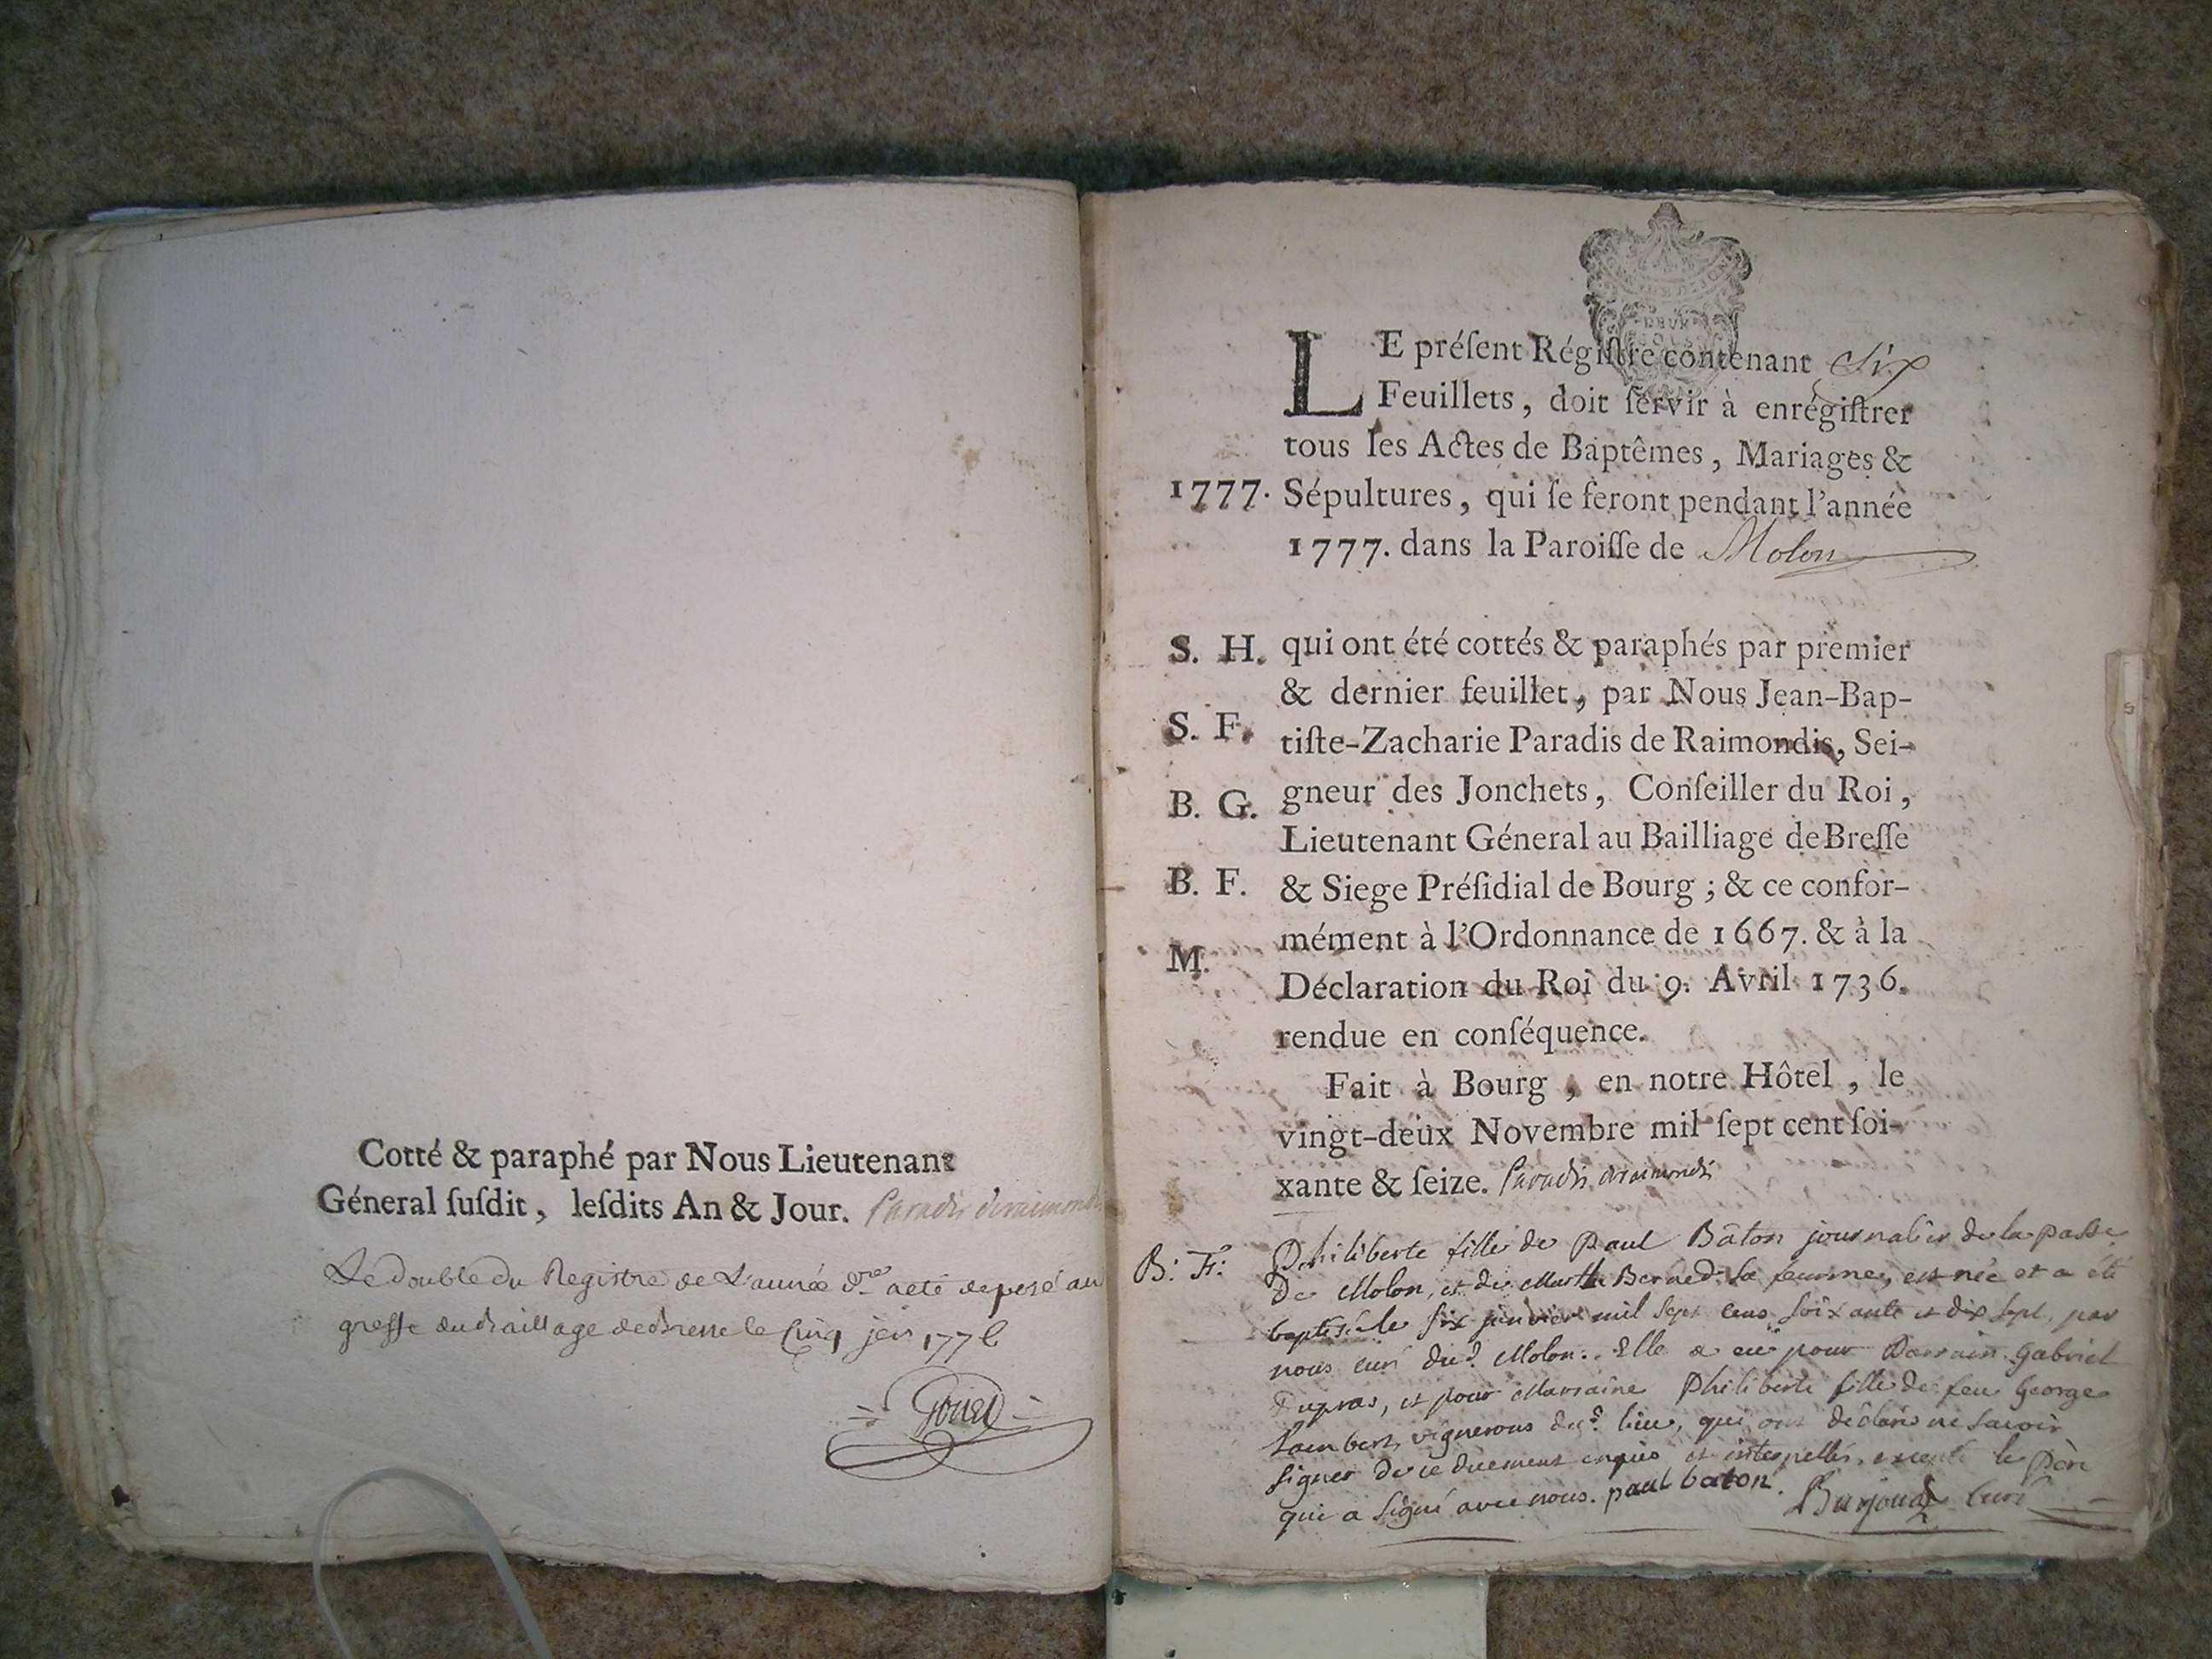 Cotté & paraphé par Nous Lieutenant
Géneral ſuſdit, leſdits An & Jour. Paradis deraimondis
Le double du Registre de L'année dre a eté deposé au
greffe du Baillage de Bresse le Cinq jer 1778
LE préſent Régiſtre contenant Six
Feuillets, doit ſervir à enrégiſtrer
tous les Actes de Baptêmes, Mariages &
1777. Sépultures, qui ſe feront pendant l'année
1777. dans la Paroiſſe de Molon
S. H. qui ont été cottés & paraphés par premier
& dernier feuillet, par Nous Jean-Bap-
S. F. tiſte-Zacharie Paradis de Raimondis, Sei-
B. G. gneur des Jonchets, Conſeiller du Roi,
Lieutenant Géneral au Bailliage de Breſſe
B. F. & Siege Préſidial de Bourg ; & ce confor-
mément à l'Ordonnance de 1667. & à la
M.
Déclaration du Roi du 9. Avril 1736.
rendue en conſéquence.
Fait à Bourg, en notre Hôtel, le
vingt-deux Novembre mil ſept cent ſoi-
xante & ſeize. Paradis deraimondis
B: F: Philiberte fille de Paul Bâton journalier de la passe
De Molon, et de Marthe sa femme, est née et a été
baptisée le six janvier mil sept cens soixante et dix sept, par
nous curé dud. Molon. Elle a eü pour Parrain Gabriel
Dupras, et pour Marraine Philiberte fille de feu George
Lambert, vignerons dud. lieu, qui ont déclaré ne savoir
signer de ce düement enquis et interpellés, excepté le Père
qui a signé avec nous. paul baton. curé